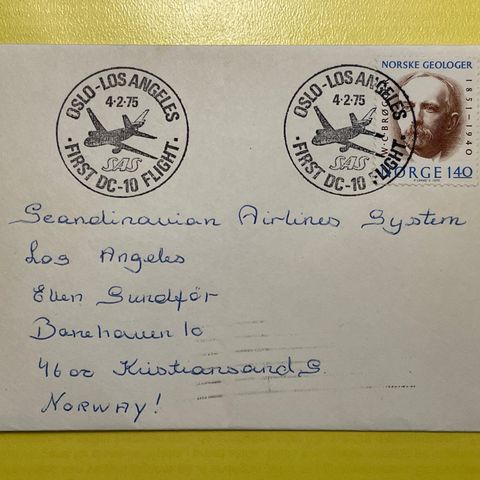 OSLO-LOS ANGELES
4-2-75
SAS
· FIRST DC-10 FLIGHT ·
OSLO-LOS ANGELES
4-2-75
SAS
· FIRST DC-10 FLIGHT ·
NORSKE GEOLOGER
1851-1940
W.C. BRØG
NORGE 140
Scandinavian Airlines System
Los Angeles
Even Sundfør
Banehaven 10
4600 Kristiansand S.
NORWAY!